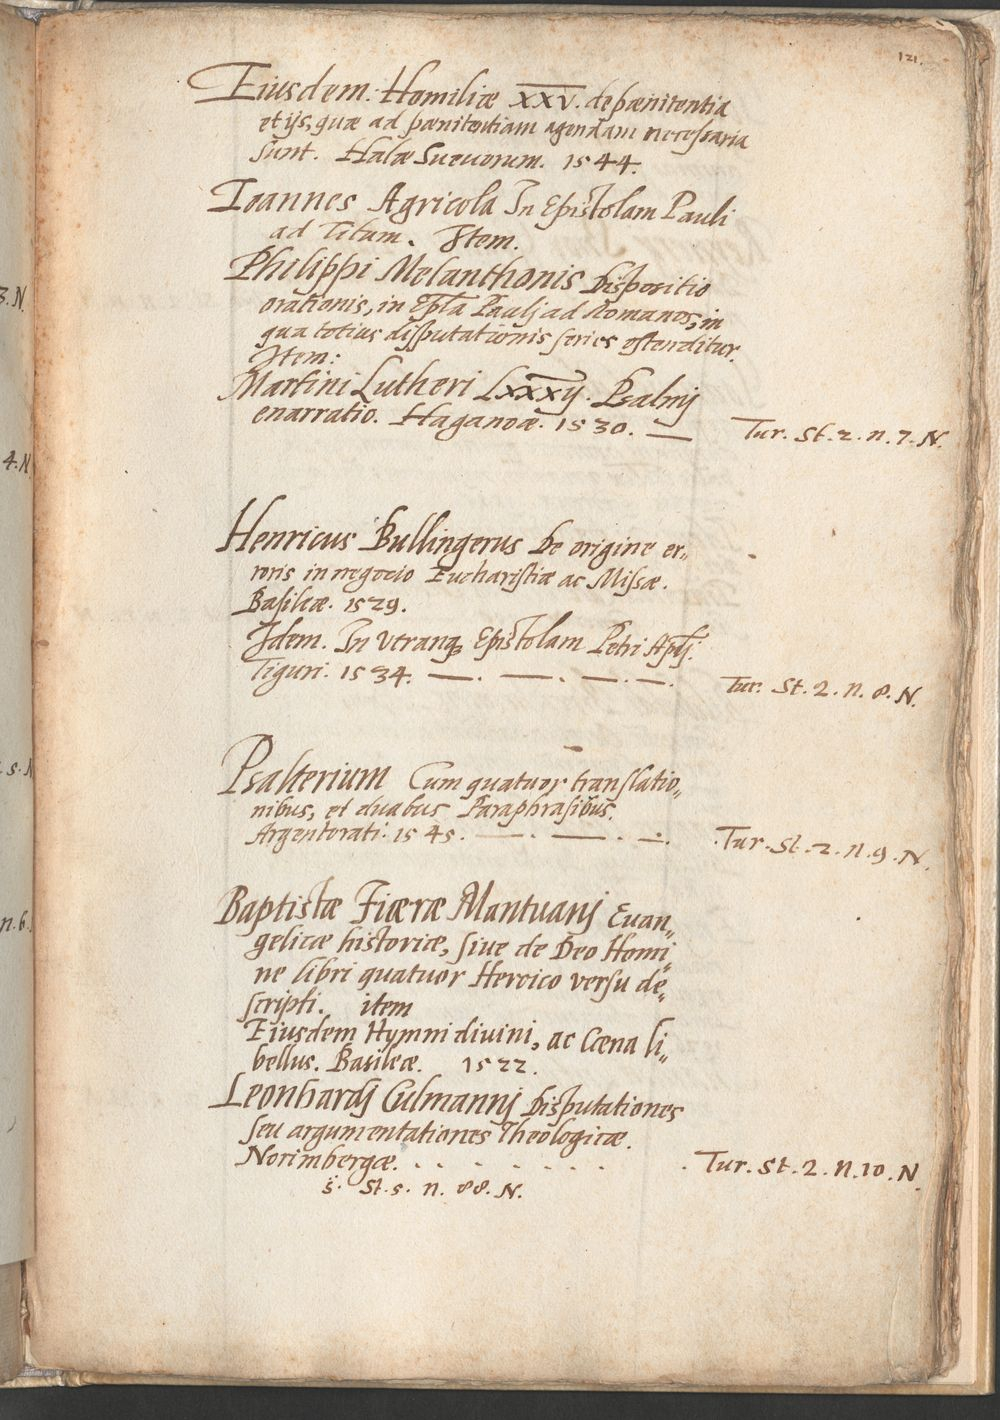 121.
Eiusdem. Homiliæ XXV. de pænitentia
et ijs, quæ ad pænitentiam agendam necessaria
sunt. Halæ Sueuorum. 1544.
Ioannes Agricola In Epistolam Pauli
ad Titum. Item.
Philippi Melanthonis Dispositio
orationis, in Epła Paulj ad Romanos, in
qua totius disputationis series ostenditur.
Item:
Martini Lutheri LXXXIJ. Psalmj
enarratio. Haganoæ. 1530. — Tur. St. 2. n. 7. N.
Henricus Bullingerus De origine er„
roris in negocio Eucharistiæ ac Missæ.
Basileæ. 1529.
Idem. In vtranq; Epistolam Petri Aplj.
Tiguri. 1534. —. —. —. —. Tur. St. 2. n. 8. N.
Psalterium Cum quatuor translatio„
nibus, et duabus Paraphrasibus.
Argentorati. 1545. —. —. —. Tur. St. 2. n. 9. N.
Baptistæ Fiæræ Mantuanj Euan„
gelicæ historiæ, siue de Deo Homi„
ne libri quatuor Heroico versu de„
scripti. item
Eiusdem Hymni diuini, ac Cœna li„
bellus. Basileæ. 1522.
Leonhardj Culmannj Disputationes
seu argumentationes Theologicæ.
Norimbergæ. . . . . . . . Tur. St. 2. n. 10. N
s. St. s. n. 88. N.
3. N.
4. N
s. N
n. 6.